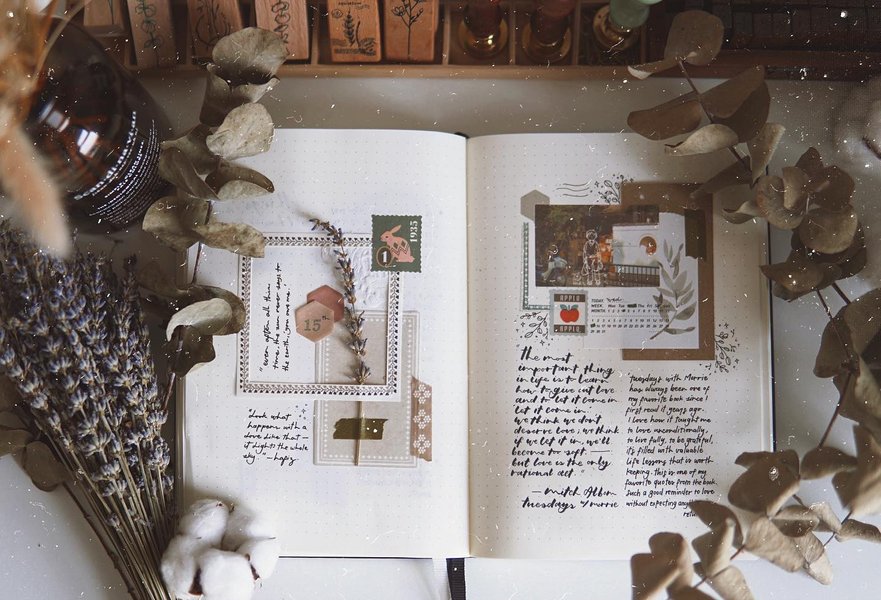 1935
1
"even after all this
time, the sun never says to
the earth, 'you owe me'."
15th
"Look what
happens with a
love like that —
it lights the whole
sky." —hafiz
APPLE
APPLE
TODAY
WEEK. Mon Tue Thu Fri
MONTH. 1 2 3
The most
important thing
in life is to learn
how to give out love
and to let it come in.
let it come in.
we think we don't
deserve love; we think
if we let it in, we'll
become too soft. —
but love is the only
rational act."
— Mitch Albom
Tuesdays w/ morrie
Tuesdays with Morrie
has always been one of
my favorite book since I
first read it years ago.
I love how it taught me
to love unconditionally,
to live fully, to be grateful,
it's filled with valuable
life lessons that is worth
keeping. this is one of my
favorite quotes from the book.
Such a good reminder to love
without expecting